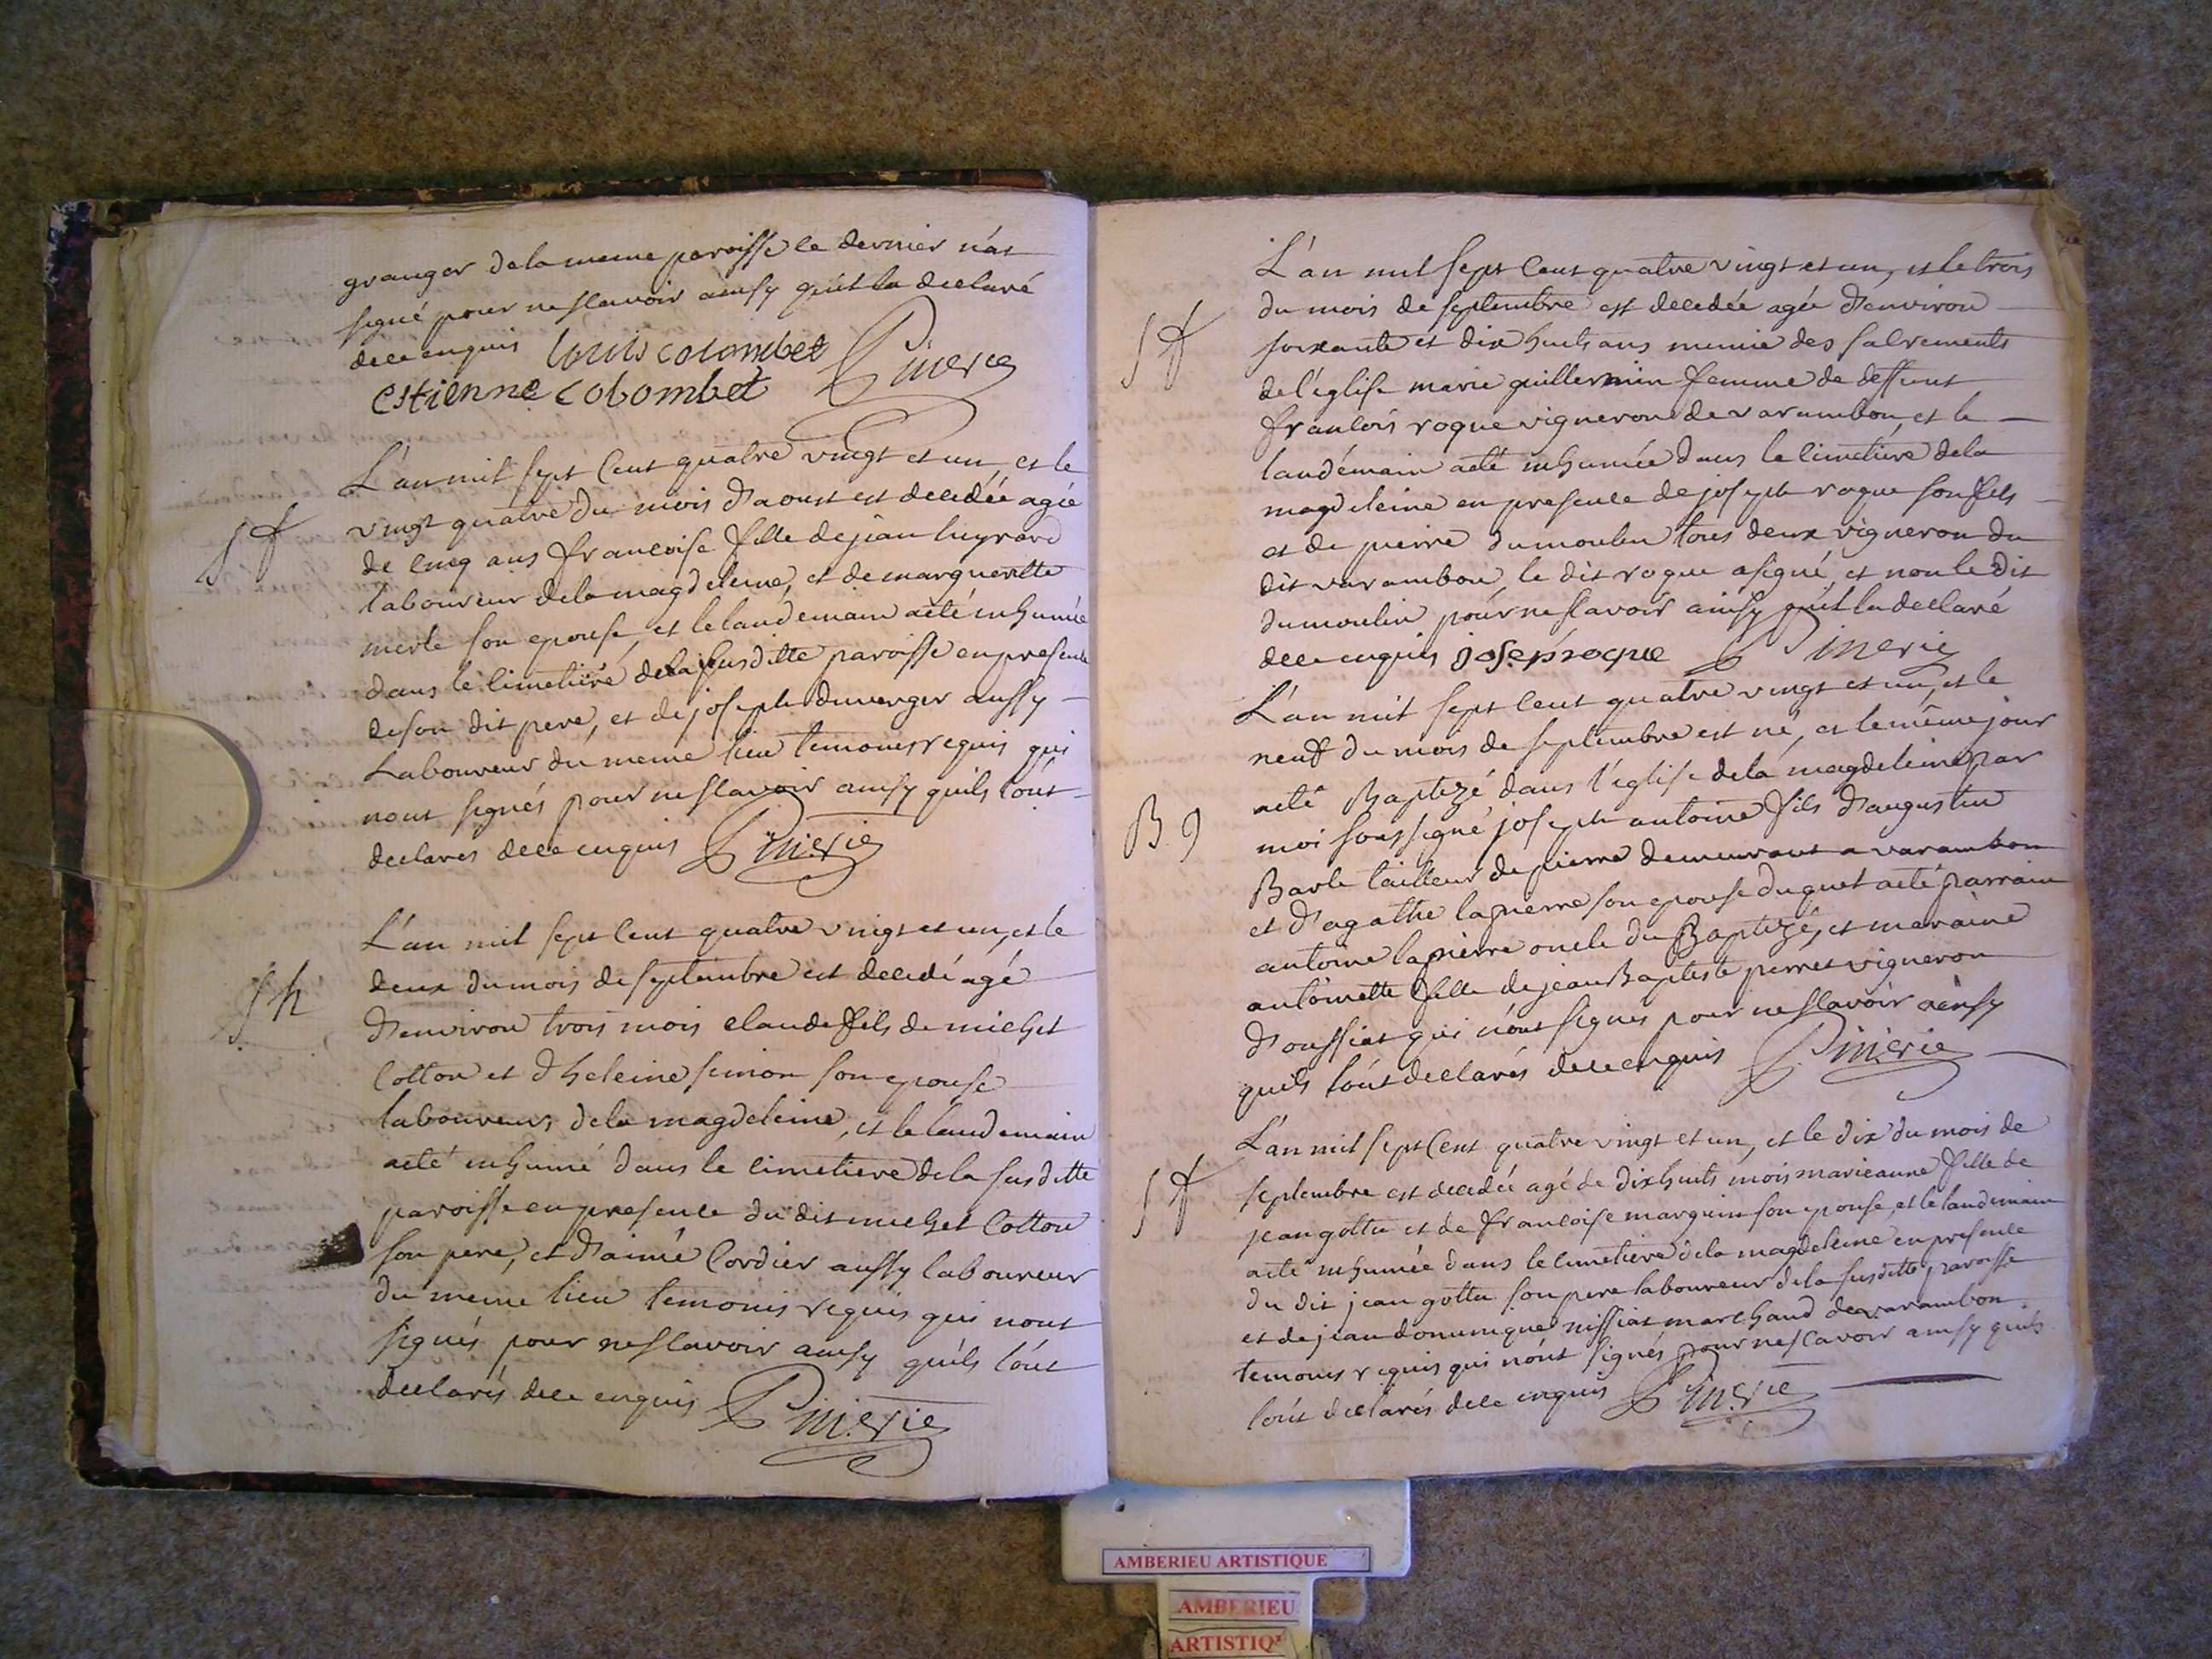 granger dela meme paroisse le dernier n'at
signé pour ne scavoir ainsy qu'il la declaré
dece enquis Louis colombet Pinerie
estienne colombet
L'an mil sept cent quatre vingt et un, et le
vingt quatre du mois d'aoust est decedée agée
sf
de cinq ans francoise fille de jean
laboureur dela magdeleine, et de margueritte
merle son epouse, et le landemain aeté inhumée
dans le cimetiere dela susditte paroisse en presence
deson dit pere, et de joseph duverger aussy
Laboureur du meme lieu temoins requis qui
nont signés pour ne scavoir ainsy quils lónt
declarés dece enquis Pinerie
L'an mil sept cent quatre vingt et un, et le
deux du mois de septembre est decedé agé
sh
d'environ trois mois claude fils de michel
Cotton et d'heleine simon son epouse
laboureurs dela magdeleine, et le landemain
aeté inhumé dans le cimetiere dela susditte
paroisse en presence du dit michel Cotton
son pere, et d'aimé Cordier aussy laboureur
du meme lieu temoins requis qui nont
signés pour ne scavoir ainsy quils lónt
declarés dece enquis Pinerie
L'an mil sept cent quatre vingt et un, et le trois
du mois de septembre est decedée agée d'environ
sf
soixante et dix huit ans munie des sacrements
del'église marie guillermin femme de deffunt
francois roque vigneron de varambon, et le
landémain aeté inhumée dans le cimetiere dela
magdeleine en presence de joseph roque son fils
et de pierre dumoulin tous deux vigneron du
dit varambon, le dit roque asigné, et non le dit
dumoulin pour ne scavoir ainsy qu'il la declaré
dece enquis joseproque Pinerie
L'an mil sept cent quatre vingt et un, et le
neuf du mois de septembre est né, et le même jour
aeté Baptizé dans l'eglise dela magdeleine par
B. g
moi soussigné joseph antoine fils d'augustin
Barle tailleur de pierre demeurant a varambon
et d'agathe lapierre son epouse duquel aeté parrain
antoine lapierre oncle du Baptizé, et maraine
antoinette fille de jean Baptiste perret vigneron
d'oussiat qui nónt signés pour ne scavoir ainsy
quils lónt declarés dece enquis Pinerie
L'an mil sept Cent quatre vingt et un, et le dix du mois de
septembre est decedée agé de dixhuits mois marieanne fille de
sf
jean gottu et de francoise marguin son epouse, et le landemain
aeté inhumée dans le cimetiere dela magdeleine en presence
du dit jean gottu son pere laboureur dela susditte paroisse
et de jean dominique missiat marchand de varambon
temoins requis qui nónt signés pour ne scavoir ainsy quils
lónt declarés dece enquis Pinerie
AMBERIEU ARTISTIQUE
AMBERIEU
ARTISTIQ